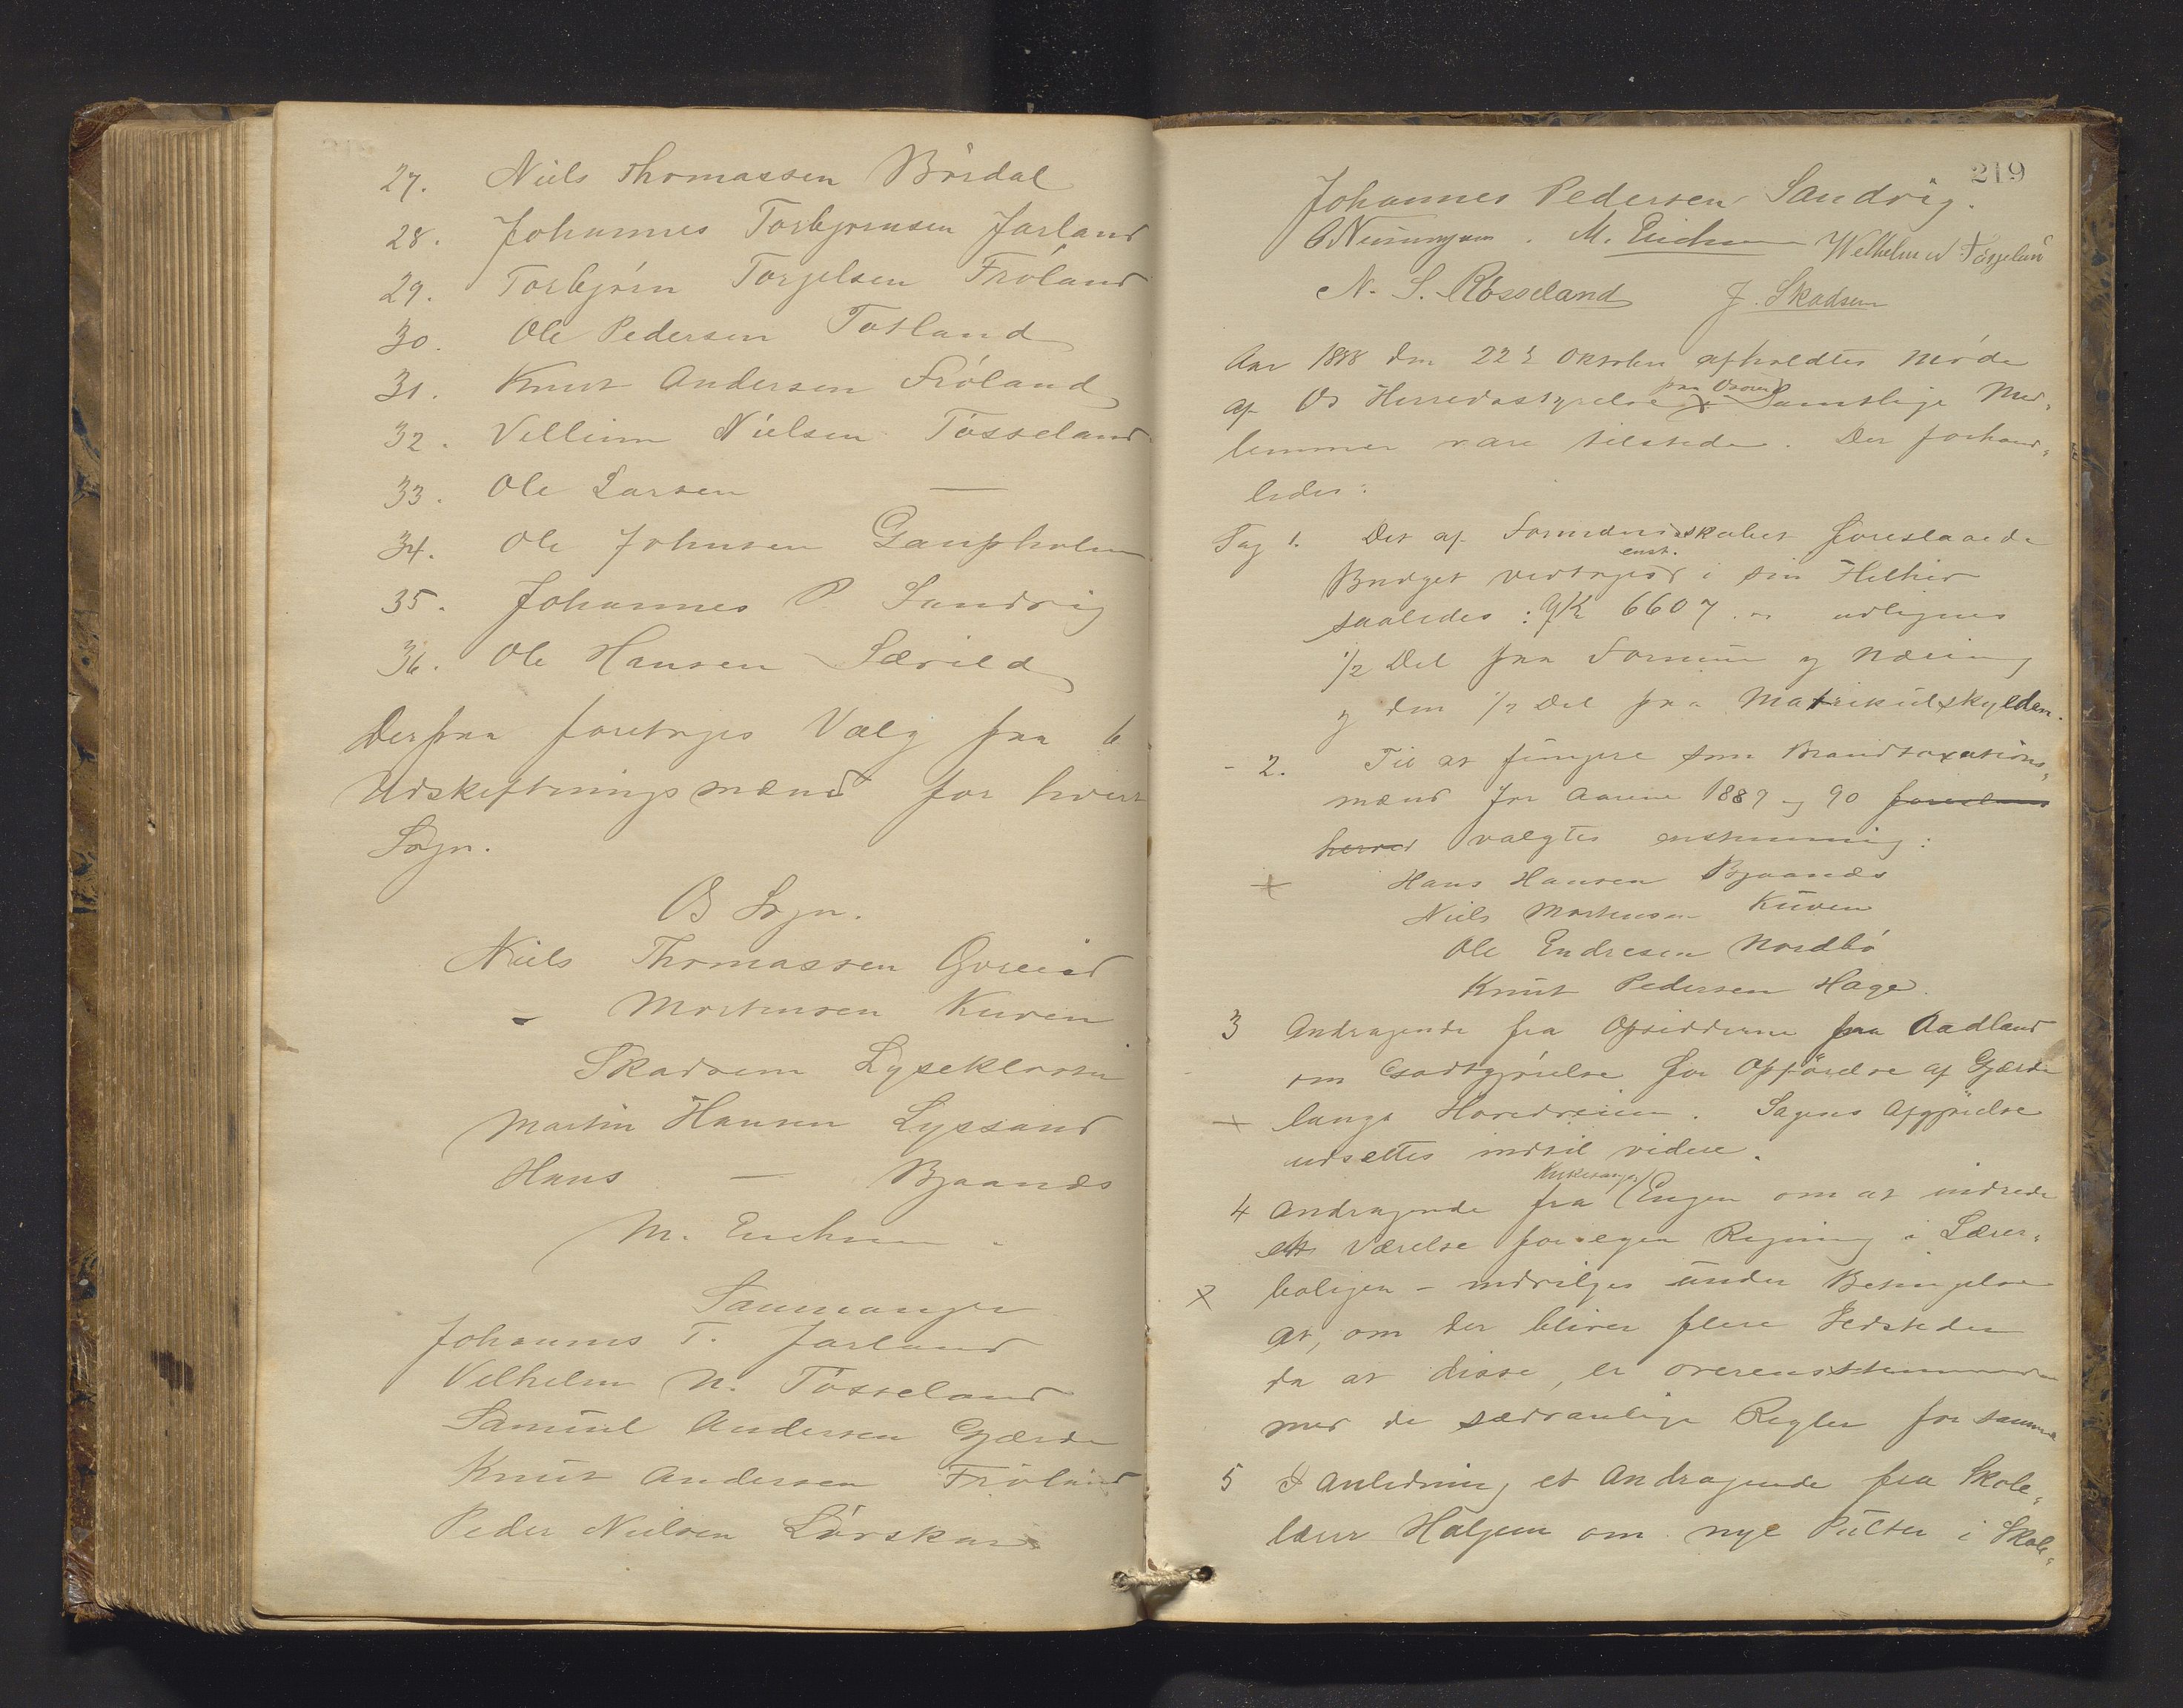 27. Niels Thomassen Bördal
28. Johannes Torbjørnsen Jarland
29. Torbjörn Torgelsen Fröland
30. Ole Pedersen Totland
31. Knut Andersen Fröland
32. Vellium Nielsen Tösseland
33. Ole Larsen —
34. Ole Johnsen Gaupholm
35. Johannes P. Sandvig
36. Ole Hansen Særild
Derpaa foretoges Valg paa 6
Udskiftningsmænd for hvert
Sogn.
Os Sogn.
Niels Thomassen
- Mortensen Kuven
Skadsem Lysekloster
Martin Hansen Lyssand
Hans — Bjaanæs
M.
Samnanger
Johannes T. Jarland
Velhelm N. Tösseland
Samuel Andersen Gjærde
Knut Andersen Fröland
Peder Nielsen
219
Johannes Pedersen Sandvig.
M. Welhelm N
N. S. Røsseland J. Skadsem
Aar 1888 den 22d Oktober afholdtes Möde
af Os Herredsstyrelse paa Samtlige Med„
lemmer vare tilstede. Der forhand„
ledes:
Sag 1. Det af Formandskabet foreslaaede
Budget vedtoges enst. i sin Helhed
saaledes : 6607 udlignes
1/2 Del paa Formue og Næring
og den 1/2 Del paa Matrikulskylden.
- 2. Til at fungere som Brandtaxations„
mænd for Aarene 1889 og 90 foreslaaes
herved valgtes enstemmig:
Hans Hansen Bjaanæs
Niels Mortensen Kuven
Ole Endresen Nordbö
Knut Pedersen Hage.
3 Andragende fra Opsidderne paa Aadland
om Godtgjörelse for Opförelse af Gjærde
langs Hovedveien. Sagens Afgjörelse
udsættes indtil videre.
4 Andragende fra Kirkesanger Engen om at indrede
et Værelse for egen Regning i Lærer„
boligen - indvilges under Betingelse
at, om der bliver flere Ildsteder
da at disse, er overensstemmende
med de sædvanlige Regler for samme
5 I Anledning et Andragende fra Skole„
lærer Haljem om nye Pulter i Skole„